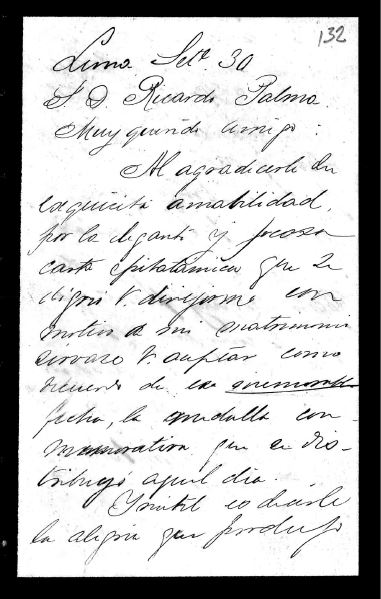 132
Lima Set. 30
S. D. Ricardo Palma.
Muy querido amigo:
Al agradecerle su
exquisita amabilidad,
por la elegante y jocosa
carta epitalámica que se
dignó V. dirigirme con
motivo de mi matrimonio
sírvase V. aceptar como
recuerdo de esa memorable
fecha, la medalla con-
memorativa que se dis-
tribuyó aquel día.
Inútil es decirle
la alegría que produjo